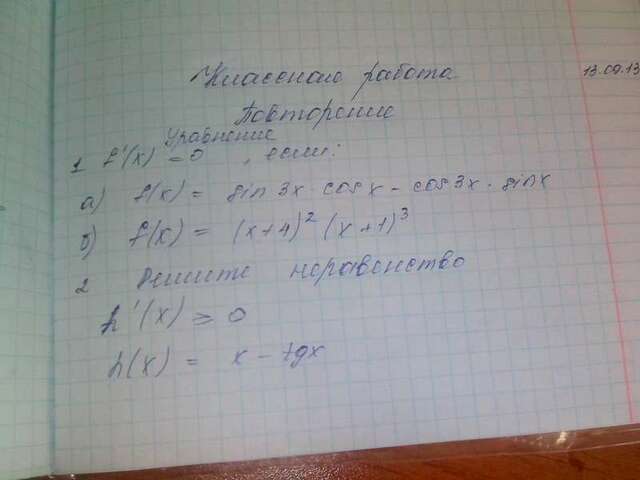 Классная работа. 13.09.13
Повторение
Уравнение
1 f'(x) = 0 , если:
а) f(x) = sin 3x · cos x - cos 3x · sin x
б) f(x) = (x+4)² (x+1)³
2 Решите неравенство
h'(x) ≥ 0
h(x) = x - tgx